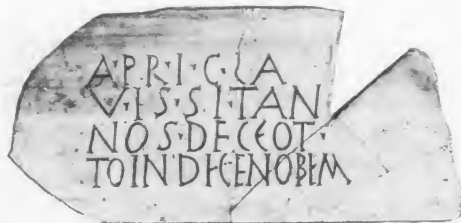 A·P·R·I·C·LA
V·I·S·S·I·TAN
NOS·DECEOT·
TOIN·DICENOBEM